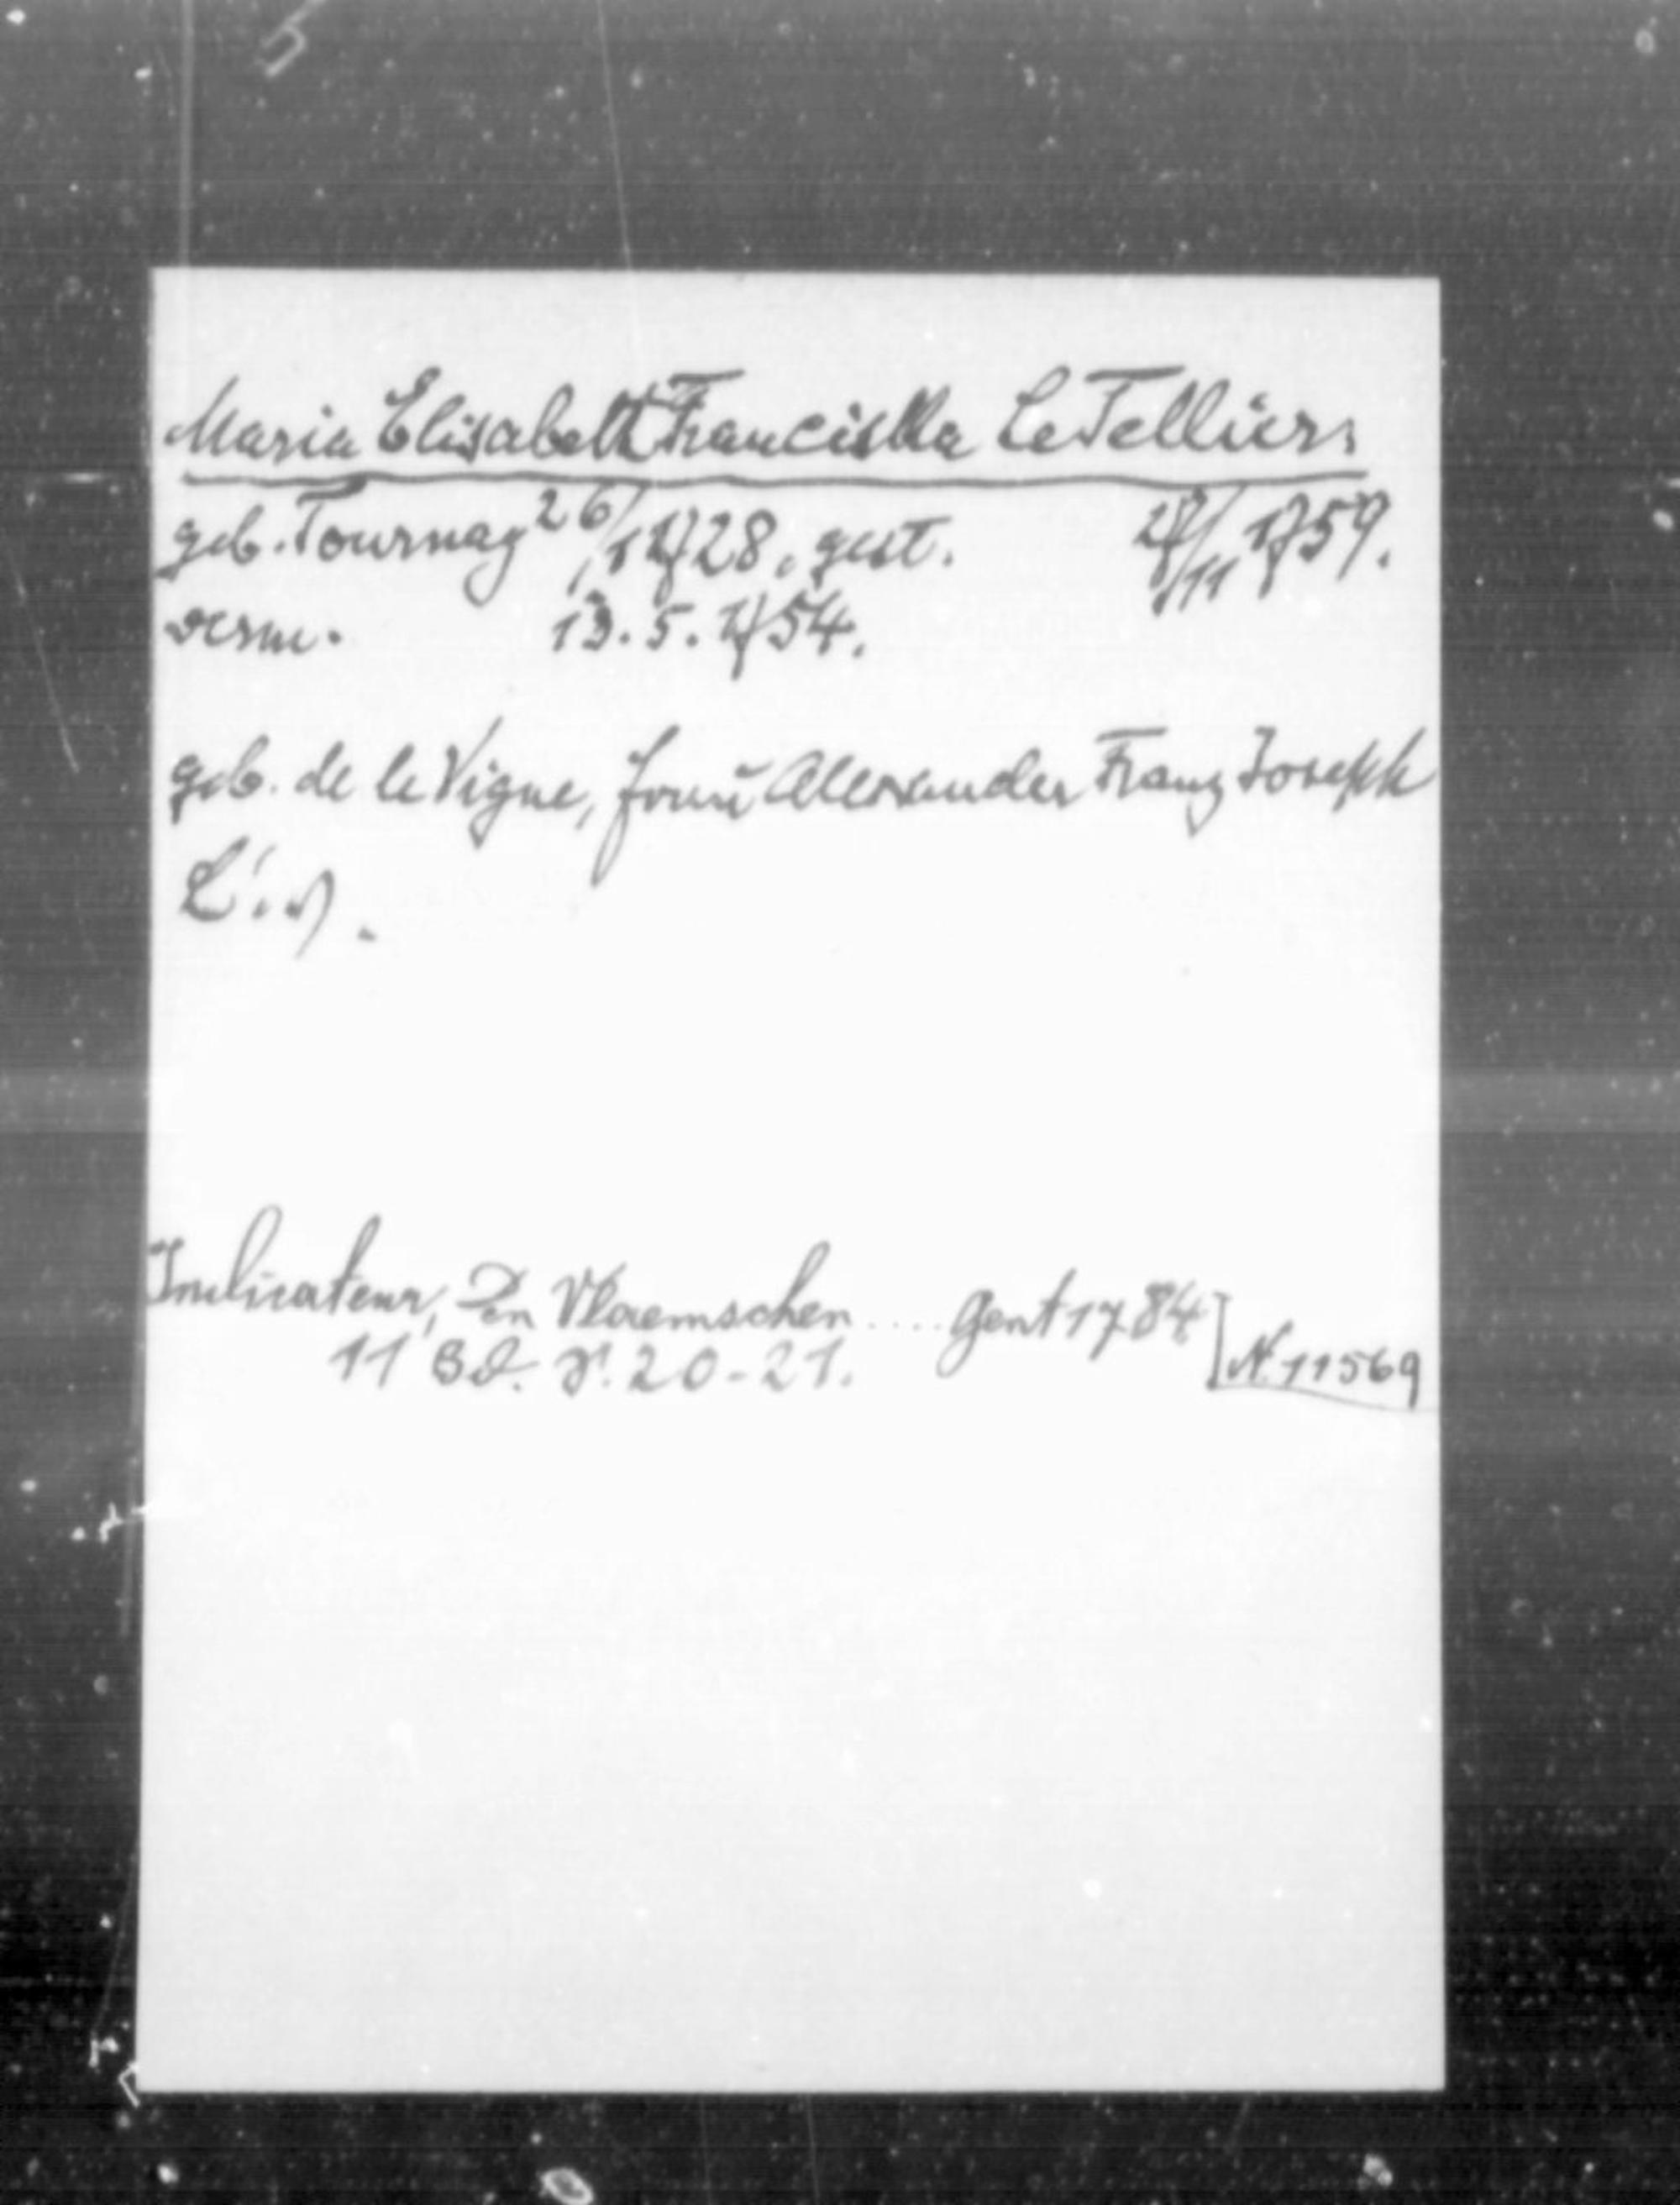 Maria Elisabeth Franciska Le Tellier.
geb. Tournay 26/1 1728, gest. 27/11 1759.
verm. 13.5.1754.
geb. de le Vigne, Frau Alexander Franz Joseph
Indicateur, Den Vlaemschen .... Gent 1784
11 Bd. S. 20-21. N. 11569